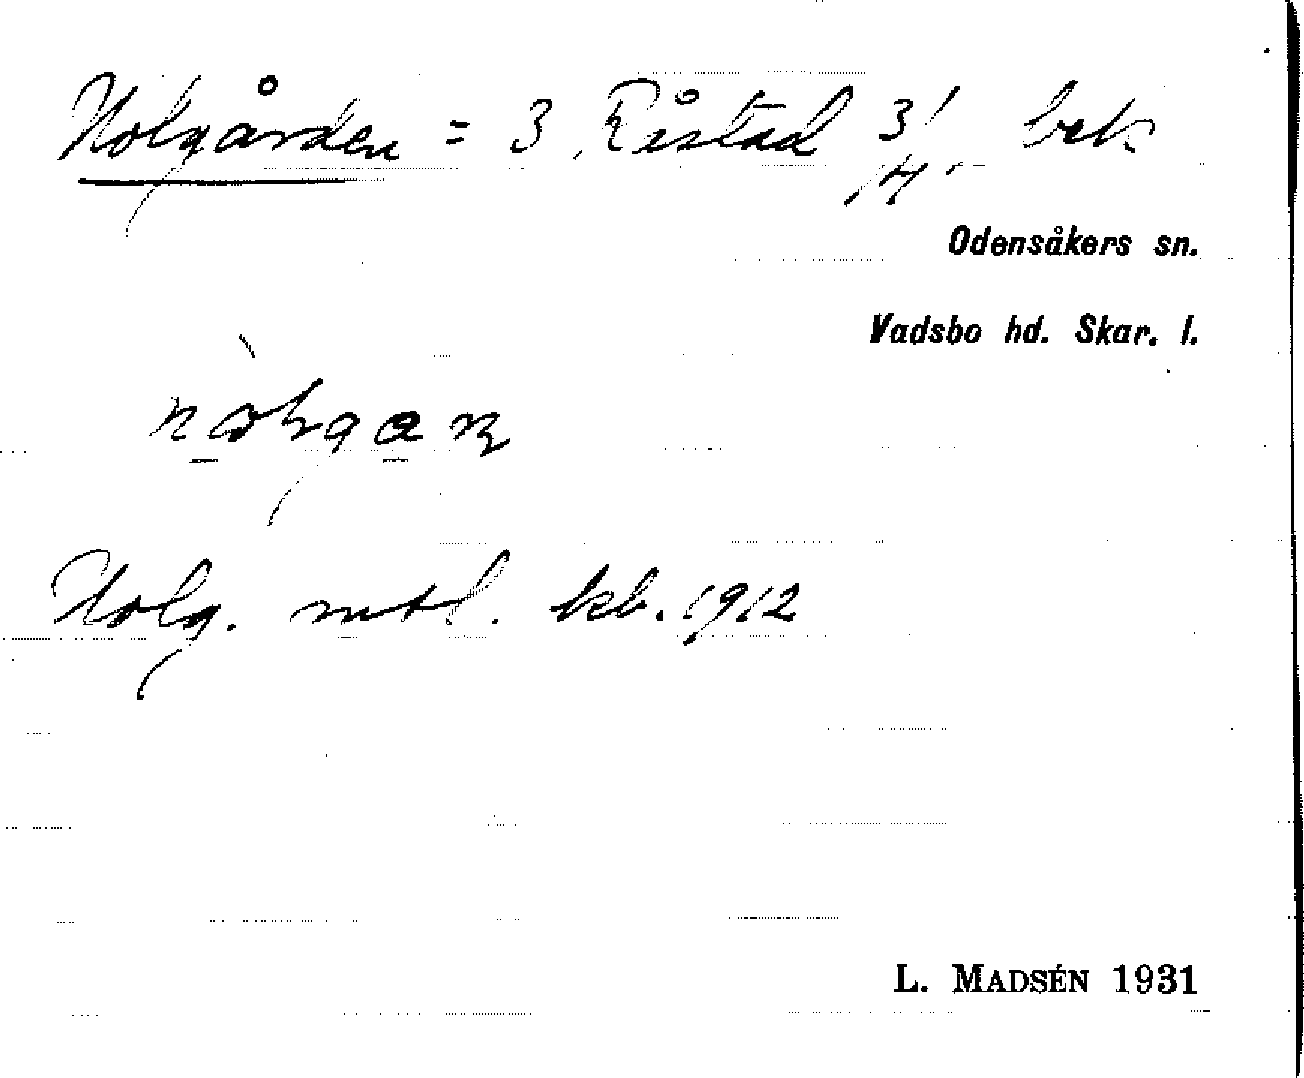 Holgården = 3 Råstad 3/4 bek
Odensåkers sn.
Vadsbo hd. Skar. l.
Holg. mtl. kb. 1912
L. MADSÉN 1931